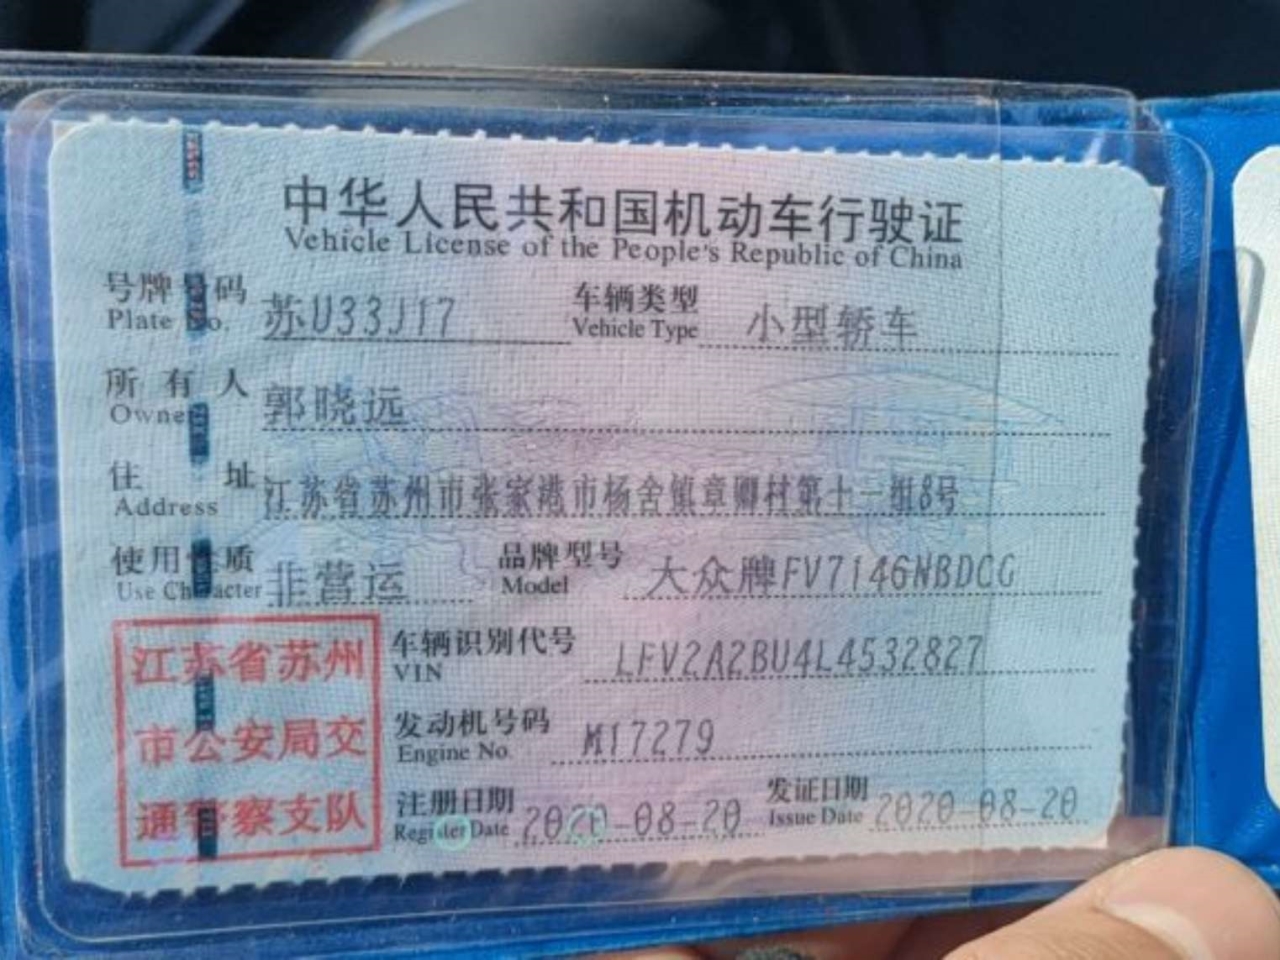 中华人民共和国机动车行驶证
Vehicle License of the People's Republic of China
号牌号码 苏U33J17 车辆类型 小型轿车
Plate No. Vehicle Type
所有人 郭晓远
Owner
住址 江苏省苏州市张家港市杨舍镇章卿村第十一组8号
Address
使用性质 非营运 品牌型号 大众牌FV7146NBDCG
Use Character Model
江苏省苏州
市公安局交
通警察支队
车辆识别代号 LFV2A2BU4L4532827
VIN
发动机号码 M17279
Engine No.
注册日期 2020-08-20 发证日期 2020-08-20
Register Date Issue Date